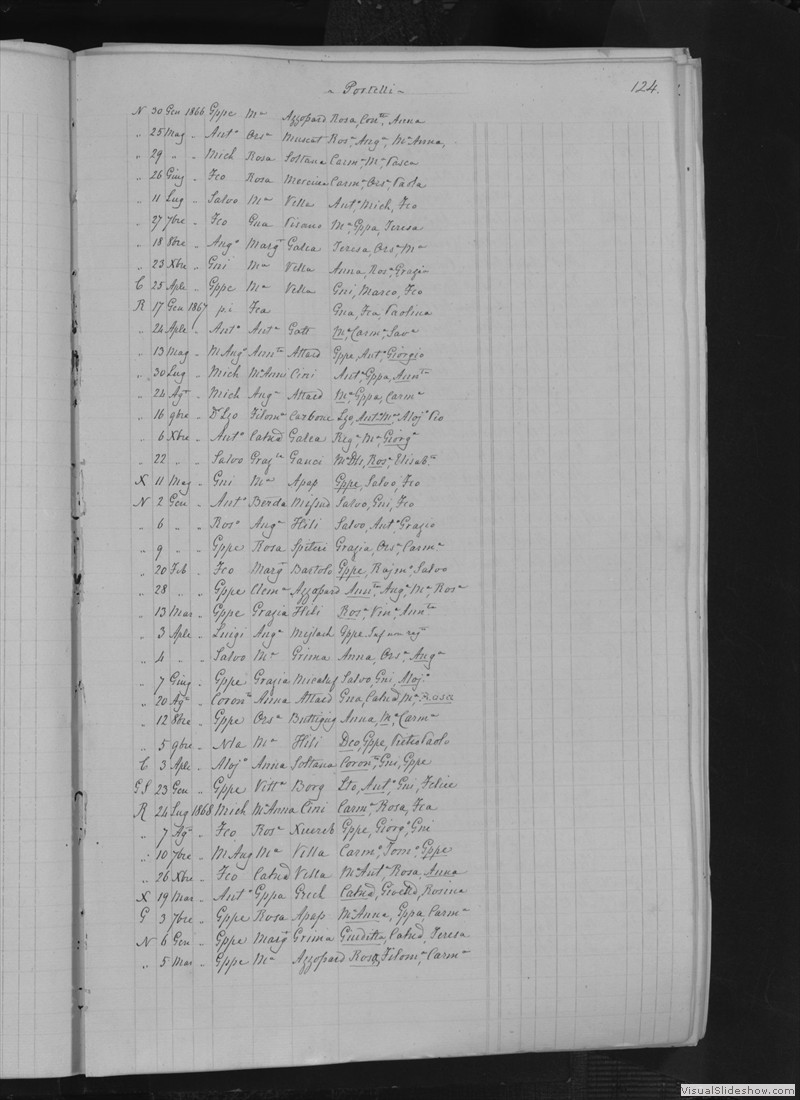 Portelli
124.
N 30 Gen 1866 Gppe Ma Azzopard Rosa, Conta, Anna
" 25 Mag " Anto Orsa Muscat Rosa, Anga, Ma Anna,
" 29 " " Mich Rosa Soltana Carma, Ma, Pasca
" 26 Giug " Fco Rosa Carma, Orsa, Paola
" 11 Lug " Salvo Ma Vella Anto, Mich, Fco
" 27 7bre " Fco Gna Pisano Ma, Gppa, Teresa
" 18 8bre " Ango Margta Galea Teresa, Orsa, Ma
" 23 Xbre " Gni Ma Vella Anna, Rosa, Grazia
C 25 Aple " Gppe Ma Vella Gni, Marco, Fco
R 17 Gen 1867 p.i Fca Gna, Fca, Paolina
" 24 Aple " Anto Anta Gatt Ma, Carma, Sava
" 13 Mag " M Ango Annta Attard Gppe, Anto, Giorgio
" 30 Lug " Mich Ma Anna Cini Anta, Gppa, Annta
" 24 Agto " Mich Anga Attard Ma, Gppa, Carma
" 16 9bre " Dr Lzo Filoma Carbone Lzo, Anto Ma, Alojo Pio
" 6 Xbre " Anto Catnd Galea Rega, Ma, Giorga
" 22 " " Salvo Grazla Gauci Ma Dls, Rosa, Elisabta
X 11 Mag " Gni Ma Apap Gppe, Salvo, Fco
N 2 Gen " Anto Berda Mifsud Salvo, Gni, Fco
" 6 " " Roso Anga Hili Salvo, Anto, Grazio
" 9 " " Gppe Rosa Spiteri Grazia, Orsa, Carma
" 20 Feb " Fco Marg Bartolo Gppe, Rajmo, Salvo
" 28 " " Gppe Clema Azzopard Annta, Anga, Ma, Rosa
" 13 Mar " Gppe Grazia Hili Rosa, Vina, Annta
" 3 Aple " Luigi Anga Mejlach Gppe
" 4 " " Salvo Ma Grima Anna, Orsa, Anga
" 7 Giug " Gppe Grazia Micalef Salvo, Gni, Alojo
" 20 Agto " Corono Anna Attard Gna, Catnd, Ma, Rosa
" 12 8bre " Gppe Orsa Buttigieg Anna, Ma, Carma
" 5 9bre " Nla Ma Hili Dco, Gppe, Pietro Paolo
C 3 Aple " Alojo Anna Soltana Corono, Gni, Gppe
GS 23 Gen " Gppe Vitta Borg Lto, Anto, Gni, Felice
R 24 Lug 1868 Mich Ma Anna Cini Carma, Rosa, Fca
" 7 Agto " Fco Rosa Xuereb Gppe, Giorgo, Gni
" 10 7bre " M Ang Ma Vella Carmo, Tomo, Gppe
" 26 Xbre " Fco Catnd Vella Ma Anta, Rosa, Anna
X 19 Mar " Anto Gppa Grech Catnd, Rosina
G 3 7bre " Gppe Rosa Apap Ma Anna, Gppa, Carma
N 6 Gen " Gppe Marg Grima Giuditta, Catnd, Teresa
" 5 Mar " Gppe Ma Azzopard Rosa, Filoma, Carma
VisualSlideshow.com